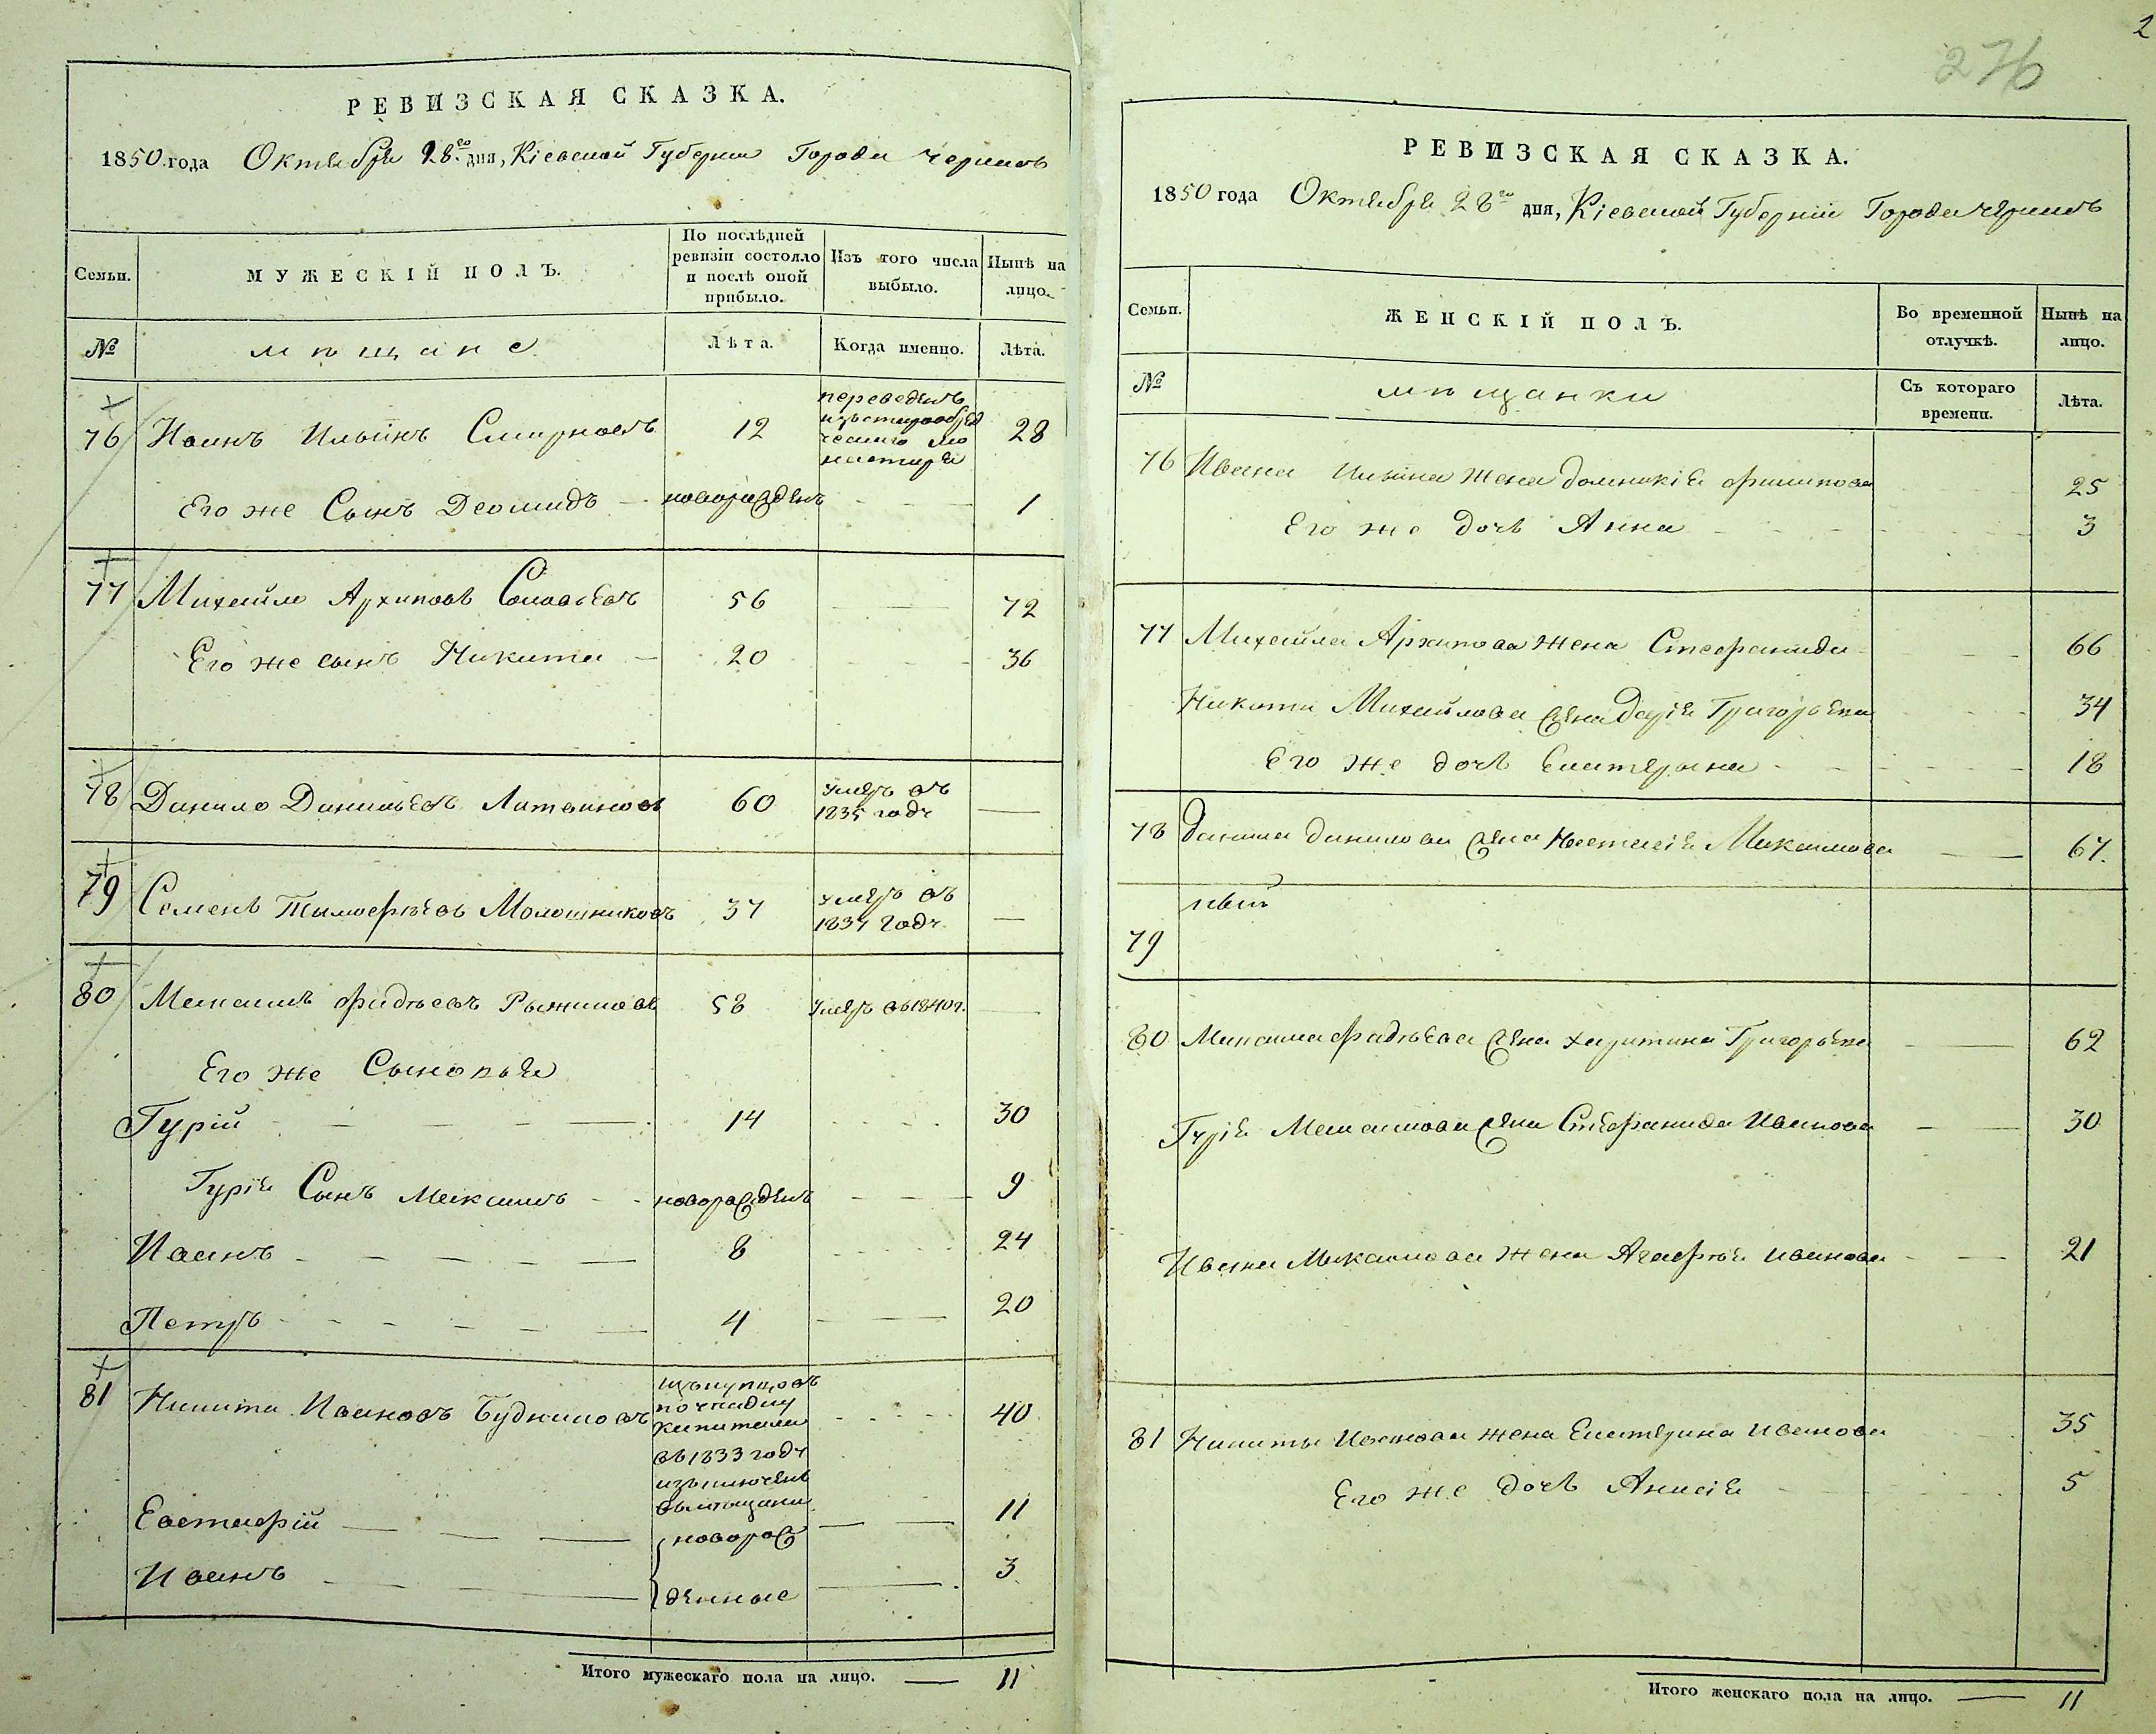 РЕВИЗСКАЯ СКАЗКА.
1850 года Октября 28го дня, Кіевской Губерніи Города
Семьи.
МУЖЕСКІЙ ПОЛЪ.
По послѣдней ревизіи состояло и послѣ оной прибыло.
Изъ того числа выбыло.
Нынѣ на лицо.
№
мѣщане
Лѣта.
Когда именно.
Лѣта.
76 Иванъ Ильинъ Смирновъ 12 переведенъ
изъ старообряд
ческаго мо
настыря 28
Его же Сынъ Деомидъ новорожденъ 1
77 Михайло Архиповъ Соловьевъ 56 72
Его же сынъ Никита 20 36
78 Данило Даниловъ 60 умеръ въ
1835 годѣ
79 Семенъ Тимофѣевъ Молошниковъ 37 умеръ въ
1837 годѣ
80 Максимъ Фадѣевъ Рыжиковъ 58 умеръ въ 1840 г.
Его же Сыновья
Гурій 14 30
Гурія Сынъ Максимъ новорожденъ 9
Иванъ 8 24
Петръ 4 20
81 Никита Ивановъ Будниковъ изъ купцовъ
по упадку
капитала
въ 1833 годѣ
изъключенъ
въ мѣщане 40
Евстафій новорож 11
Иванъ денные 3
Итого мужескаго пола на лицо. 11
2
276
РЕВИЗСКАЯ СКАЗКА.
1850 года Октября 28го дня, Кіевской Губерніи Города
Семьи.
ЖЕНСКІЙ ПОЛЪ.
Во временной отлучкѣ.
Нынѣ на лицо.
№
мѣщанки
Съ котораго времени.
Лѣта.
76 Ивана Ильина жена Домникія Филипова 25
Его же дочь Анна 3
77 Михайла Архипова жена Стефанида 66
Никиты Михайлова жена Дарія Григорьева 34
Его же дочь Екатерина 18
78 Данила Данилова жена Настасія Максимова 67.
79
80 Максима Фадѣева жена Харитина Григорьева 62
Гурія Максимова жена Стефанида Иванова 30
Ивана Максимова жена Агафья Иванова 21
81 Никиты Иванова жена Екатерина Иванова 35
Его же дочь Анисія 5
Итого женскаго пола на лицо. 11